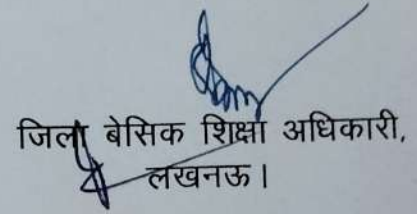 जिला बेसिक शिक्षा अधिकारी,
लखनऊ।